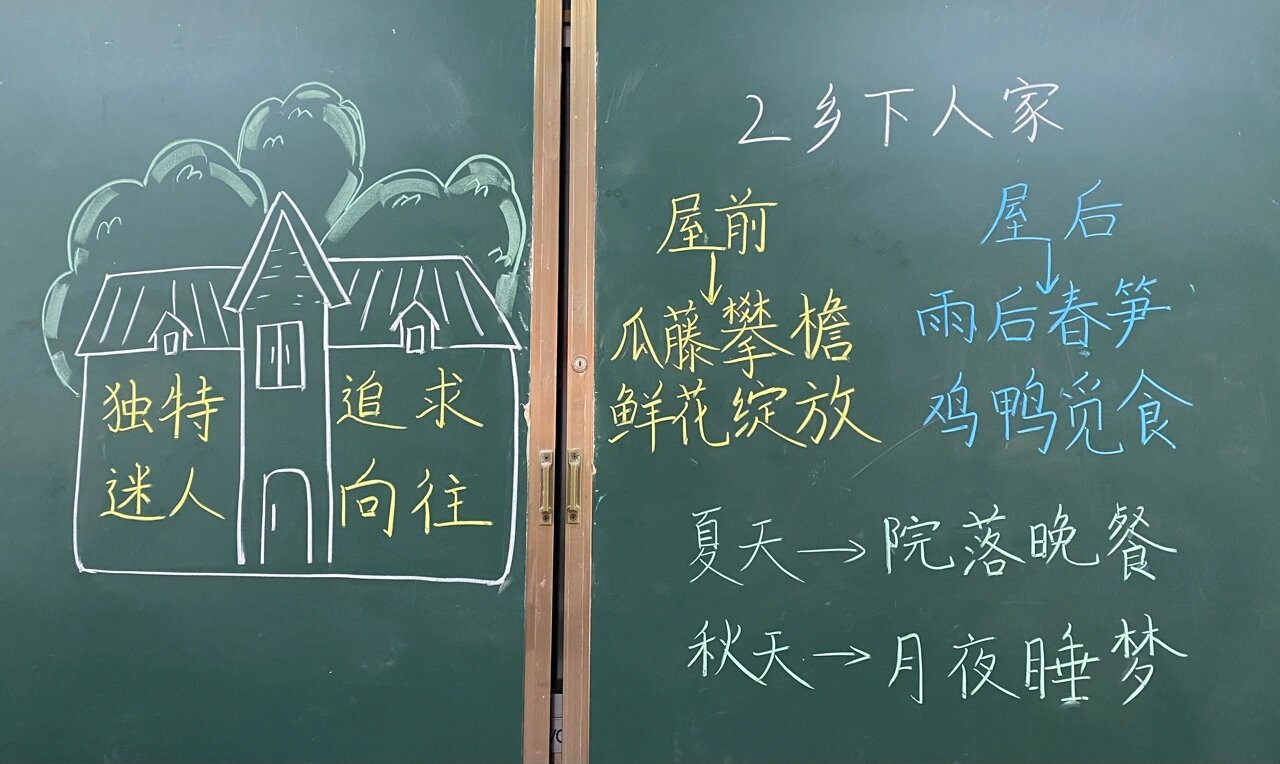 独特 追求
迷人 向往
2 乡下人家
屋前 屋后
瓜藤攀檐 雨后春笋
鲜花绽放 鸡鸭觅食
夏天→院落晚餐
秋天→月夜睡梦